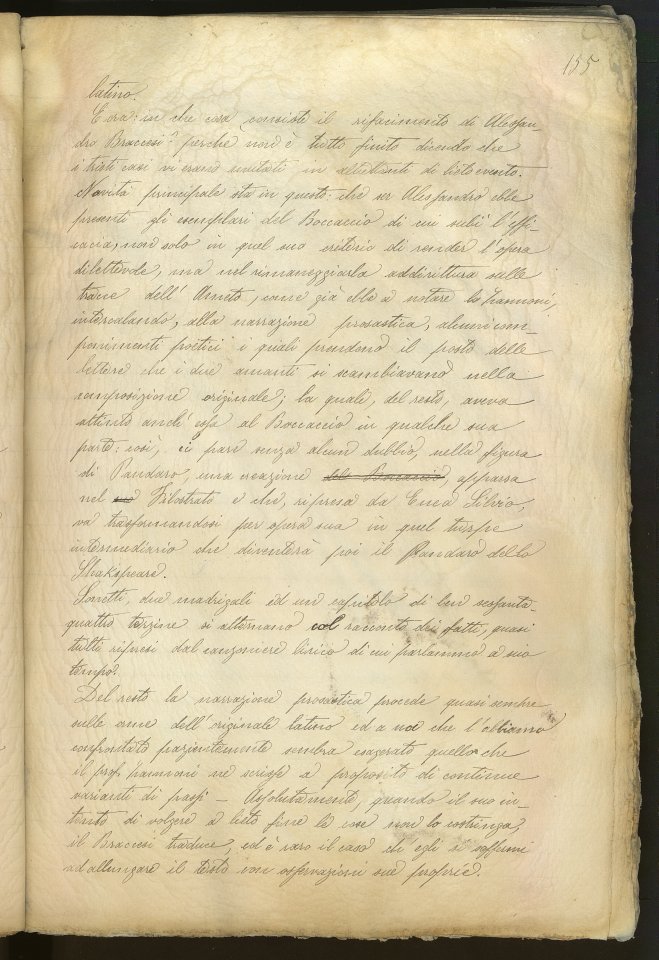 155
latino.
Ed ora: in che cosa consiste il rifacimento di Alessan-
dro Braccesi? perchè non è tutto finito dicendo che
i tristi casi vi erano mutati in dilettanti di lieto evento.
Novità principale sta in questo: che ser Alessandro ebbe
presenti gli esemplari del Boccaccio di cui subì l'effi-
cacia, non solo in quel suo criterio di render l'opera
dilettevole, ma nel rimaneggiarla addirittura sulle
trame dell'Ameto, come già ebbe a notare lo Zannoni,
intercalando, alla narrazione prosastica, alcuni com-
ponimenti poetici i quali prendono il posto delle
lettere che i due amanti si scambiavano nella
composizione originale; la quale, del resto, aveva
attinto anch'essa al Boccaccio in qualche sua
parte: così, ci pare senza alcun dubbio, nella figura
di Pandaro, una creazione del Boccaccio, apparsa
nel suo Filostrato e che, ripresa da Enea Silvio,
va trasformandosi per opera sua in quel turpe
intermediario che diventerà poi il Pandaro dello
Sheakspeare.
Sonetti, due madrigali ed un capitolo di ben sessanta-
quattro terzine si alternano col racconto dei fatti, quasi
tutti ripresi dal canzoniere lirico di cui parlammo a suo
tempo.
Del resto la narrazione prosastica procede quasi sempre
sulle orme dell'originale latino ed a noi che l'abbiamo
confrontato pazientemente sembra esagerato quello che
il prof. Zannoni ne scrisse a proposito di continue
varianti di passi – Assolutamente, quando il suo in-
tento di volgere a lieto fine le cose non lo costringa,
il Braccesi traduce, ed è raro il caso che egli si soffermi
ad allungare il testo con osservazioni sue proprie.